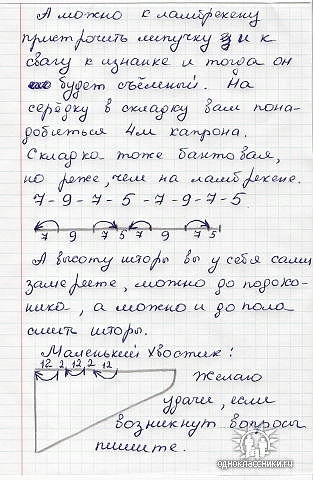 А можно к ламбрекену
пристрочить липучку и к
свагу к изнанке и тогда он
будет съёмный. На
серёдку в складку вам пона-
добиться 4м капрона.
Складка тоже бантовая,
но реже, чем на ламбрекене.
7-9-7-5-7-9-7-5
7 9 7 5 7 9 7 5
А высоту шторы вы у себя сами
замеряете, можно до подоко-
ника, а можно и до пола
сшить шторы.
Маленький хвостик:
12 2 12 2 12
Желаю
удачи, если
возникнут вопросы
пишите.
одноклассники.ru